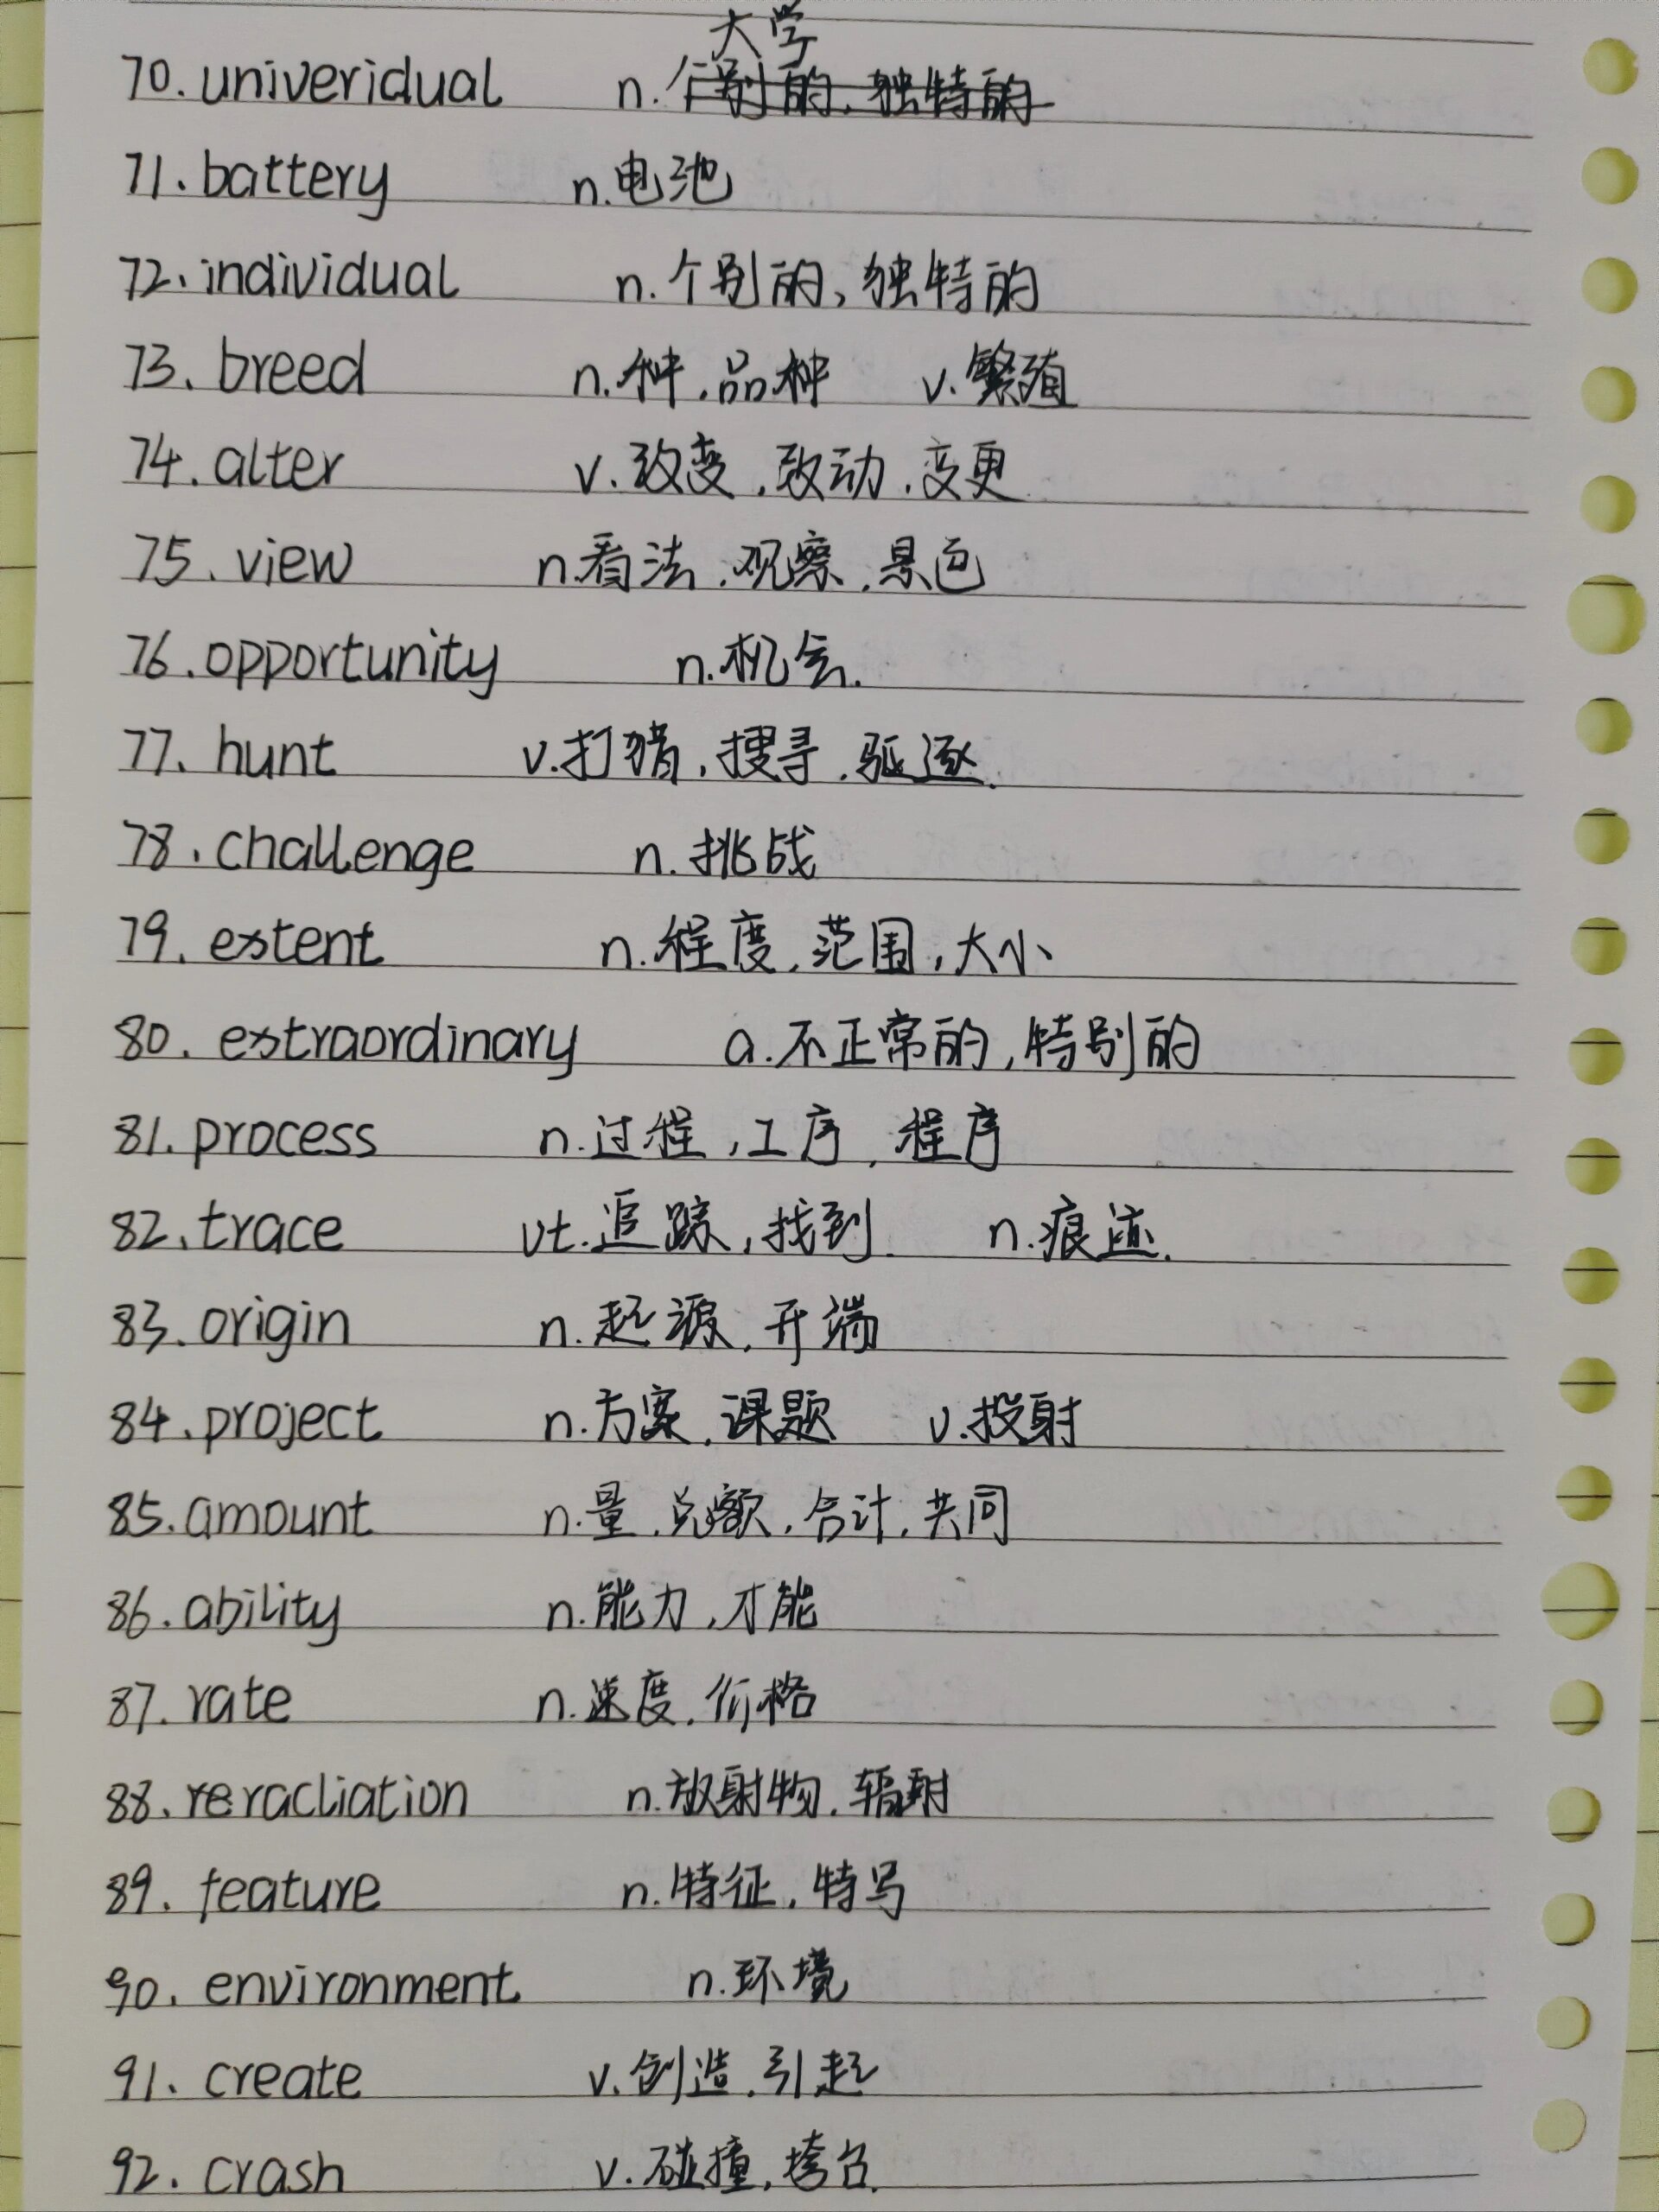 大学
70. univeridual n. 个别的, 独特的
71. battery n. 电池
72. individual n. 个别的, 独特的
73. breed n. 种, 品种 v. 繁殖
74. alter v. 改变, 改动, 变更
75. view n. 看法, 观察, 景色
76. opportunity n. 机会.
77. hunt v. 打猎, 搜寻, 驱逐.
78. challenge n. 挑战
79. extent n. 程度, 范围, 大小
80. extraordinary a. 不正常的, 特别的
81. process n. 过程, 工序, 程序
82. trace vt. 追踪, 找到 n. 痕迹.
83. origin n. 起源, 开端
84. project n. 方案, 课题 v. 投射
85. amount n. 量, 总额, 合计, 共同
86. ability n. 能力, 才能
87. rate n. 速度, 价格
88. reracliation n. 放射物, 辐射
89. feature n. 特征, 特写
90. environment n. 环境
91. create v. 创造, 引起
92. crash v. 碰撞, 垮台.